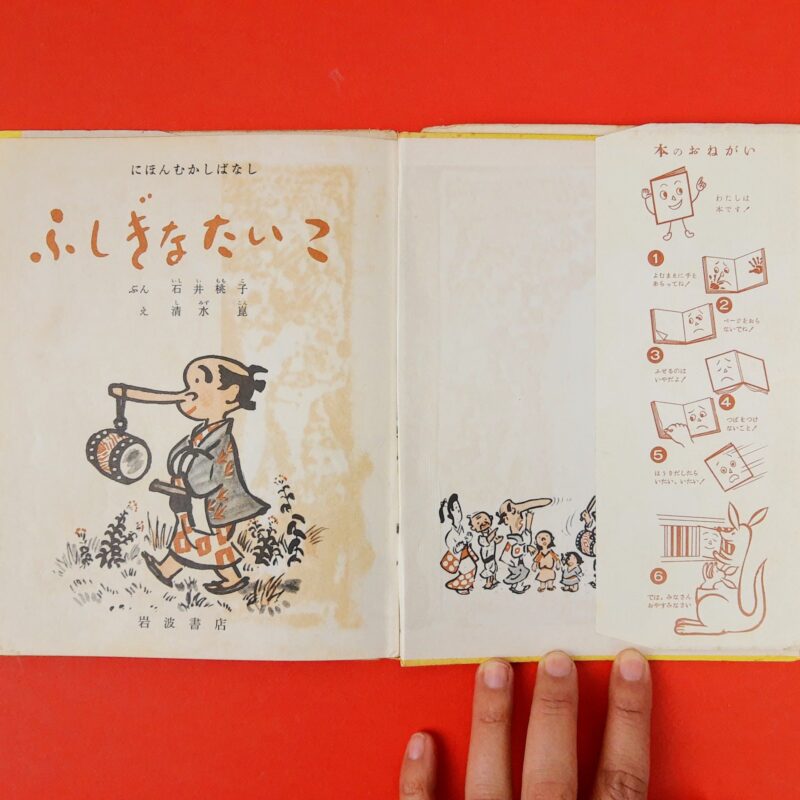 にほんむかしばなし
ふしぎなたいこ
ぶん 石井桃子
いし い もも こ
え 清水崑
し みず こん
岩波書店
本のおねがい
わたしは
本です!
1
よむまえに手を
あらってね!
2
ページをおら
ないでね!
3
ふせるのは
いやだよ!
4
つばをつけ
ないこと!
5
ほうりだしたら
いたい、いたい!
6
では、みなさん
おやすみなさい